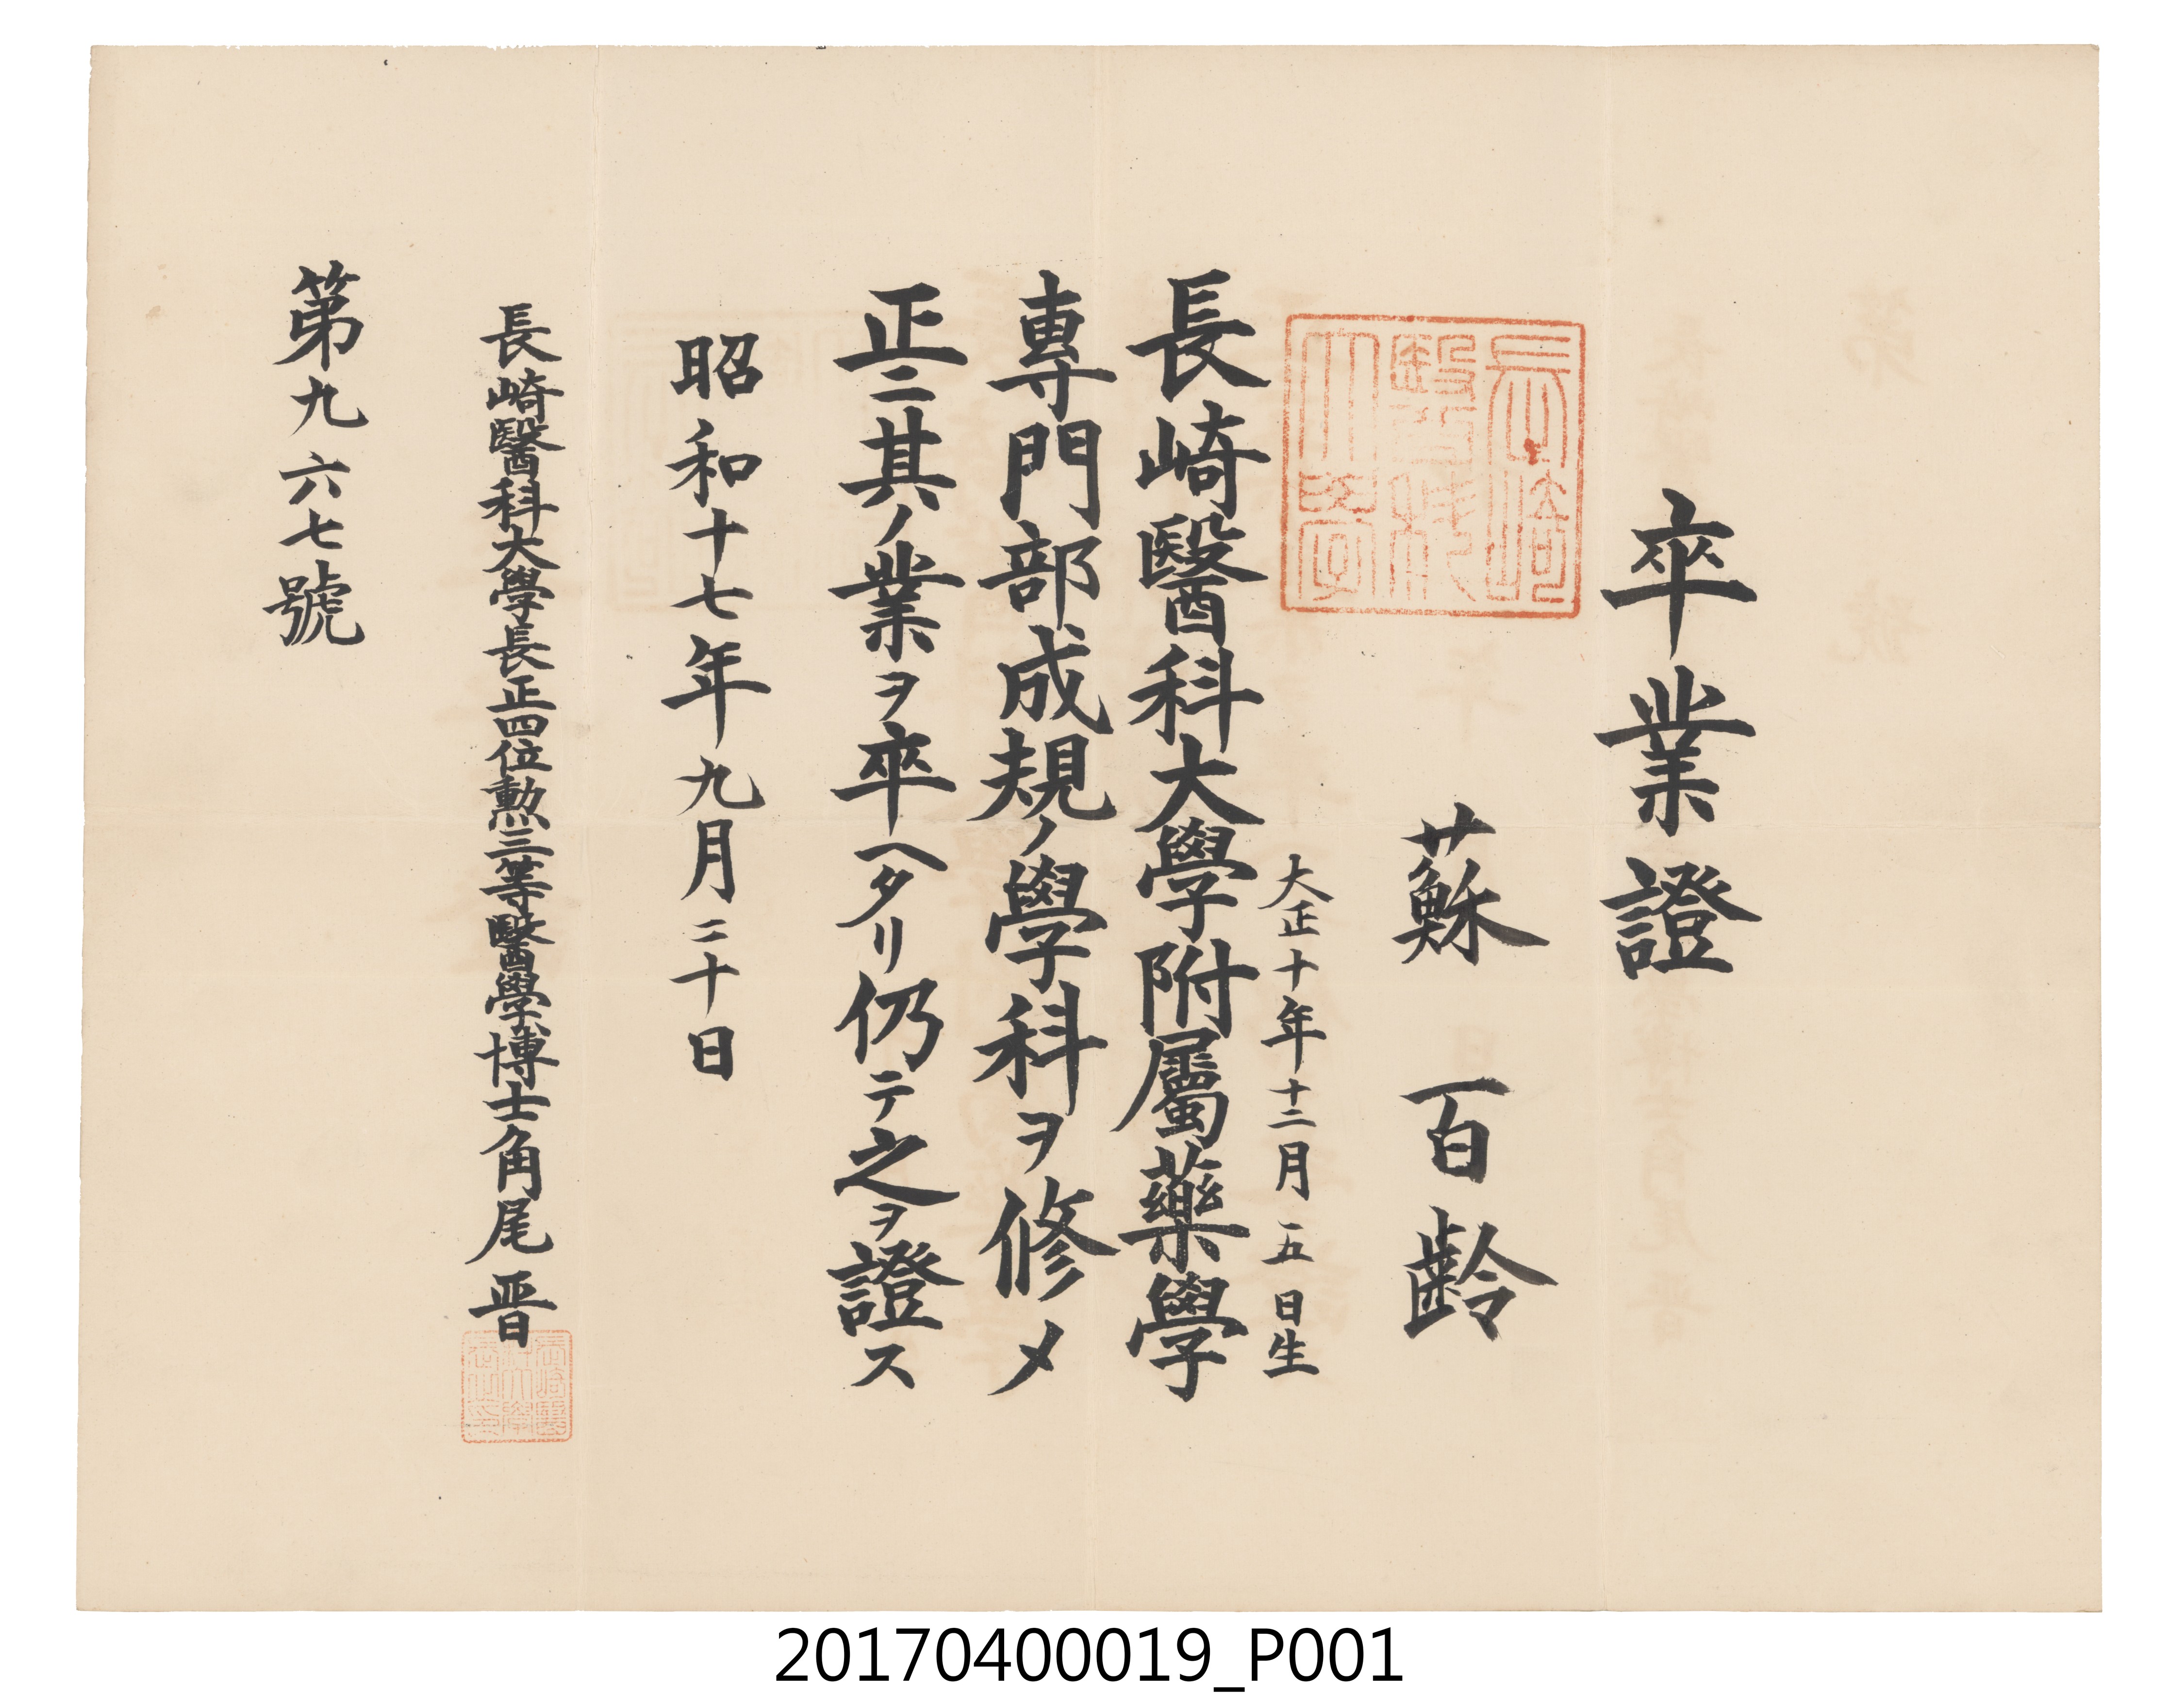 卒業證
蘇百齡
大正十年十二月一五日生
長崎醫科大學
長崎醫科大學附屬藥學
專門部成規ノ學科ヲ修メ
正ニ其ノ業ヲ卒ヘタリ仍テ之ヲ證ス
昭和十七年九月二十日
長崎醫科大學長正四位勲三等醫學博士角尾晋
第九六七號
20170400019_P001